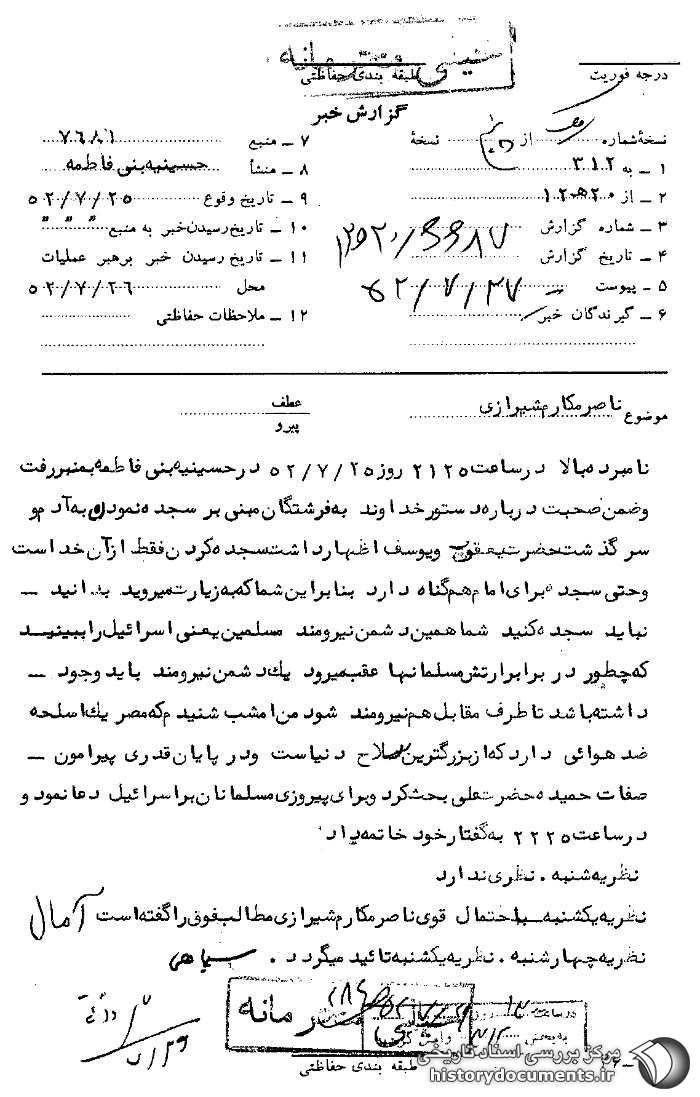 طبقه بندی حفاظتی
درجه فوریت
گزارش خبر
نسخهٔ شماره از نسخهٔ
۱ ــ به ۳۱۲
۲ ــ از ۲۰ ه‍ ۱۲
۳ ــ شماره گزارش
۴ ــ تاریخ گزارش
۵ ــ پیوست ۵۲/۷/۲۷
۶ ــ گیرندگان خبر
۷ ــ منبع ۷۶۸۱
۸ ــ منشأ حسینیه بنی فاطمه
۹ ــ تاریخ وقوع ۵۲/۷/۲۵
۱۰ ــ تاریخ رسیدن خبر به منبع " " "
۱۱ ــ تاریخ رسیدن خبر برهبر عملیات
محل ۵۲/۷/۲۶
۱۲ ــ ملاحظات حفاظتی
موضوع ناصر مکارم شیرازی
عطف
پیرو
نامبرده بالا در ساعت ۲۱۲۵ روز ۵۲/۷/۲۵ در حسینیه بنی فاطمه بمنبر رفت
و ضمن صحبت درباره دستور خداوند به فرشتگان مبنی بر سجده نمودن به آدم و
سرگذشت حضرت یعقوب و یوسف اظهار داشت سجده کردن فقط از آن خداست
و حتی سجده برای امام هم گناه دارد بنابراین شما که به زیارت میروید بدانید ــ
نباید سجده کنید شما همین دشمن نیرومند مسلمین یعنی اسرائیل را ببینید
که چطور در برابر ارتش مسلمانها عقب میرود یک دشمن نیرومند باید وجود ــ
داشته باشد تا طرف مقابل هم نیرومند شود من امشب شنیدم که مصر یک اسلحه
ضد هوائی دارد که از بزرگترین سلاح دنیاست و در پایان قدری پیرامون ــ
صفات حمیده حضرت علی بحث کرد و برای پیروزی مسلمانان بر اسرائیل دعا نمود و
در ساعت ۲۲۲۵ به گفتار خود خاتمه داد.
نظریه شنبه . نظری ندارد
نظریه یکشنبه . باحتمال قوی ناصر مکارم شیرازی مطالب فوق را گفته است آمال
نظریه چهارشنبه . نظریه یکشنبه تائید میگردد . سپاهی
در ساعت
به بخش ۳۱۲
طبقه بندی حفاظتی
مرکز بررسی اسناد تاریخی
historydocuments.ir